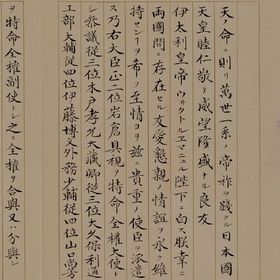 天ノ命ニ則リ萬世一系ノ帝祚ヲ踐タル日本國
天皇睦仁敬テ威望隆盛ナル良友
伊太利皇帝ウィクトルエマニュル陛下ニ白ス朕幸ニ
兩國間ニ存在セル友愛懇親ノ情誼ヲ永ク維
持センコトヲ希フ至情ヨリ茲ニ貴重ノ使臣ヲ派遣
ス乃右大臣正二位岩倉具視ヲ特命全權大使ト
シ參議從三位木戸孝允大藏卿從三位大久保利通
工部大輔從四位伊藤博文外務少輔從四位山口尚芳
ヲ特命全權副使トシ之ニ全權ヲ合與又ハ分與シ